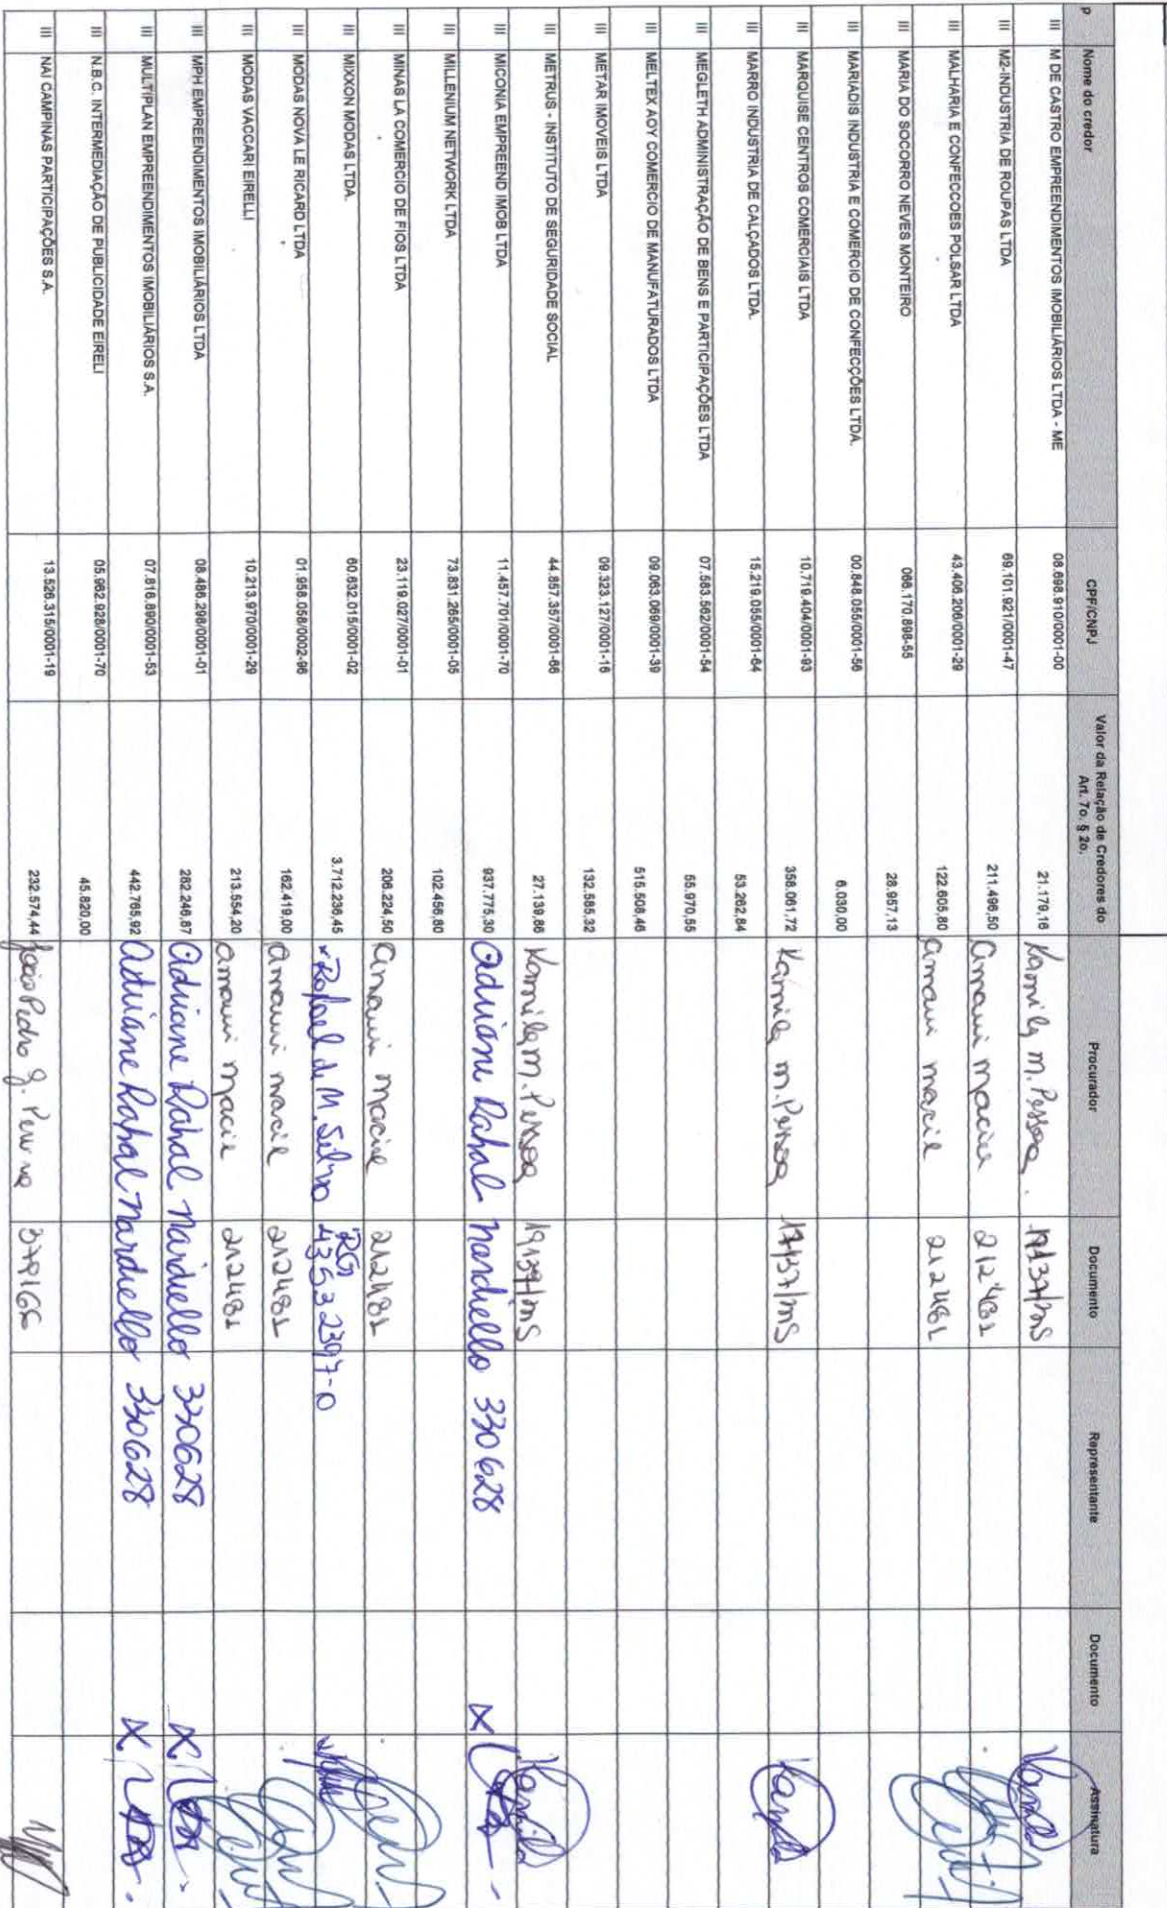 P Nome do credor CPF/CNPJ Valor da Relação de Credores do Art. 7o. § 2o. Procurador Documento Representante Documento Assinatura
III M DE CASTRO EMPREENDIMENTOS IMOBILIÁRIOS LTDA - ME 08.698.910/0001-00 21.179,16 Kamila M. Pessoa.
III M2-INDUSTRIA DE ROUPAS LTDA 69.101.921/0001-47 211.496,50 amauri maciel 212481
III MALHARIA E CONFECCOES POLSAR LTDA 43.406.206/0001-29 122.605,80 amauri maciel 212481
III MARIA DO SOCORRO NEVES MONTEIRO 066.170.898-55 28.957,13
III MARIADIS INDUSTRIA E COMERCIO DE CONFECÇÕES LTDA. 00.848.055/0001-56 6.030,00
III MARQUISE CENTROS COMERCIAIS LTDA 10.719.404/0001-93 358.061,72 Kamila m. Pessoa 17137/ms
III MARRO INDUSTRIA DE CALÇADOS LTDA. 15.219.055/0001-64 53.262,84
III MEGLETH ADMINISTRAÇÃO DE BENS E PARTICIPAÇÕES LTDA 07.583.562/0001-54 55.970,55
III MELTEX AOY COMERCIO DE MANUFATURADOS LTDA 09.063.069/0001-39 515.508,46
III METAR IMOVEIS LTDA 09.323.127/0001-16 132.585,32
III METRUS - INSTITUTO DE SEGURIDADE SOCIAL 44.857.357/0001-66 27.139,86 Kamila m. Pessoa
III MICONIA EMPREEND IMOB LTDA 11.457.701/0001-70 937.775,30 Adriane Rahal Nardiello 330628 X
III MILLENIUM NETWORK LTDA 73.831.265/0001-05 102.456,80
III MINAS LA COMERCIO DE FIOS LTDA 23.119.027/0001-01 206.224,50 amauri maciel 212481
III MIXXON MODAS LTDA. 60.632.015/0001-02 3.712.236,45 Rafael de M. Silva RG 43532397-0
III MODAS NOVA LE RICARD LTDA 01.958.058/0002-96 162.419,00 amauri maciel 212481
III MODAS VACCARI EIRELLI 10.213.970/0001-29 213.554,20 amauri maciel 212481
III MPH EMPREENDIMENTOS IMOBILIÁRIOS LTDA 08.486.298/0001-01 282.246,87 Adriane Rahal Nardiello 330628 X
III MULTIPLAN EMPREENDIMENTOS IMOBILIÁRIOS S.A. 07.816.890/0001-53 442.765,92 Adriane Rahal Nardiello 330628 X
III N.B.C. INTERMEDIAÇÃO DE PUBLICIDADE EIRELI 05.962.928/0001-70 45.820,00
III NAI CAMPINAS PARTICIPAÇÕES S.A. 13.526.315/0001-19 232.574,44 João Pedro 379166